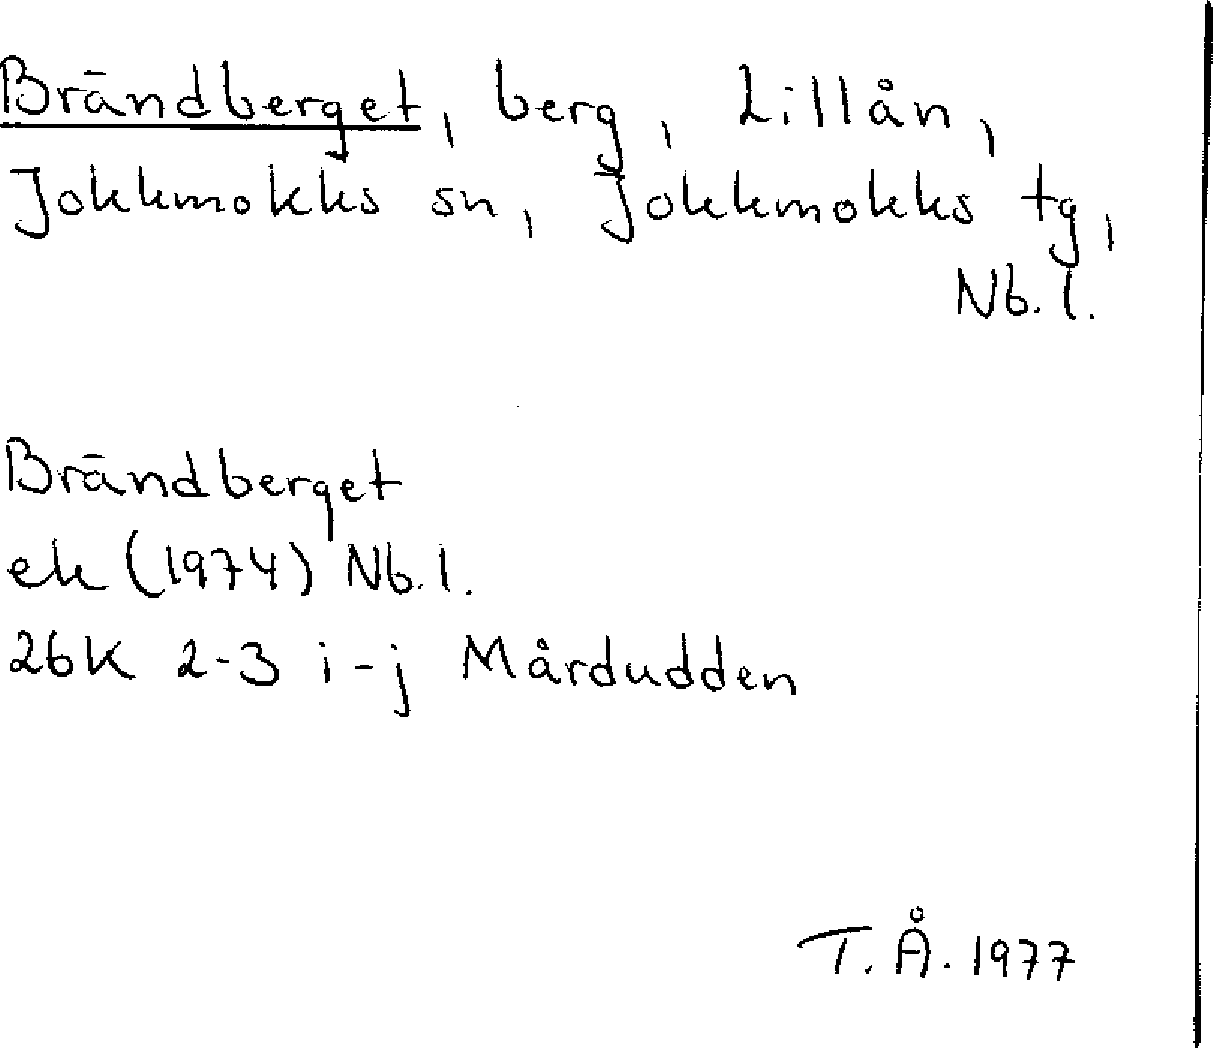 Brändberget, berg, Lillån,
Jokkmokks sn, Jokkmokks tg,
Nb. l.
Brändberget
ek (1974) Nb. l.
26K 2-3 i-j Mårdudden
T. Å. 1977